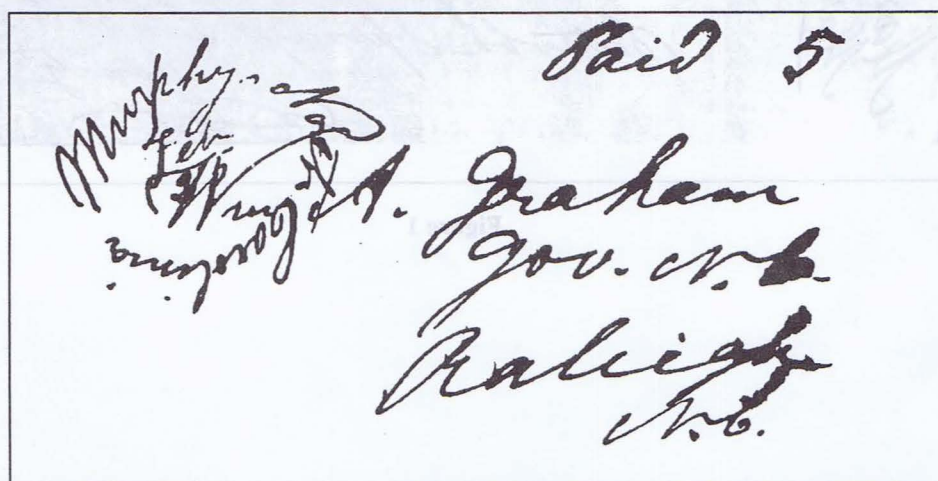 Paid 5
Murphy.
Feb
Carolina
Wm. A. Graham
Gov. N.C.
Raleigh
N.C.